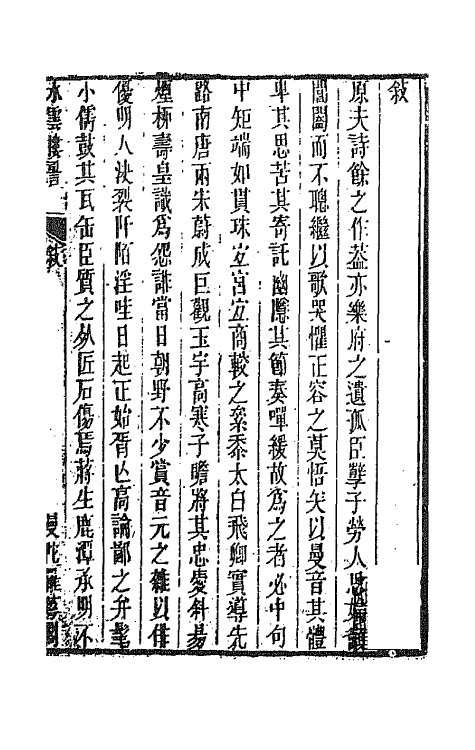 敍
原夫詩餘之作葢亦樂府之遺孤臣孽子勞人思婦
閶闔而不聰繼以歌哭懼正容之莫悟矢以曼音其體
卑其思苦其寄託幽隱其節奏嘽緩故爲之者必中句
中矩端如貫珠宜宮宜商較之絫黍太白飛卿實導先
路南唐兩宋蔚成巨觀玉宇高寒子瞻將其忠愛斜易
煙柳壽皇識爲怨誹當日朝野不少賞音元之雜以俳
優明人決裂阡陌淫哇日起正始胥亾高論鄙之弁髦
小儒鼓其瓦缶臣質之死匠石傷焉蔣生鹿潭承明不
水雲樓 敍
曼陀羅華閣